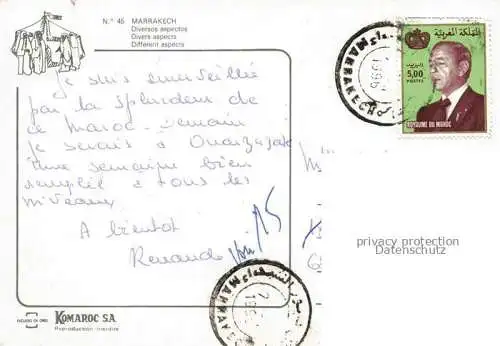 N.° 45 MARRAKECH
Diversos aspectos
Divers aspects
Different aspects
Je suis émerveillée
par la splendeur de
ce Maroc. Demain
je serais à Ouarzazate
Une semaine bien
remplie à tous les
niveaux
A bientôt
Renaude
KOMAROC S.A.
Reproduction interdite
MARRAKECH
1996
المملكة المغربية
5,00
POSTES
ROYAUME DU MAROC
privacy protection
Datenschutz
MARRAKECH